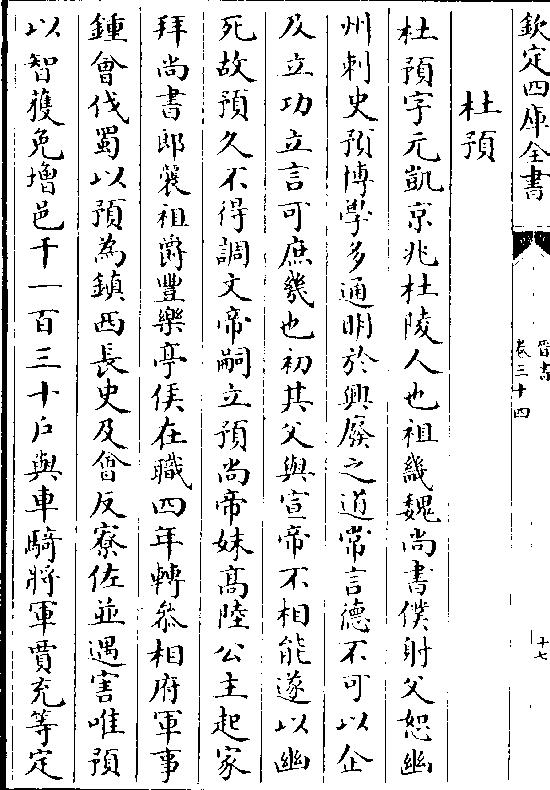 欽定四庫全書
晉書
卷三十四
十七
杜預
杜預字元凱京兆杜陵人也祖畿魏尚書僕射父恕幽
州刺史預博學多通明於興廢之道常言德不可以企
及立功立言可庶幾也初其父與宣帝不相能遂以幽
死故預久不得調文帝嗣立預尚帝妹高陸公主起家
拜尚書郎襲祖爵豐樂亭侯在職四年轉叅相府軍事
鍾會伐蜀以預為鎮西長史及會反寮佐並遇害唯預
以智獲免增邑千一百三十户與車騎將軍賈充等定